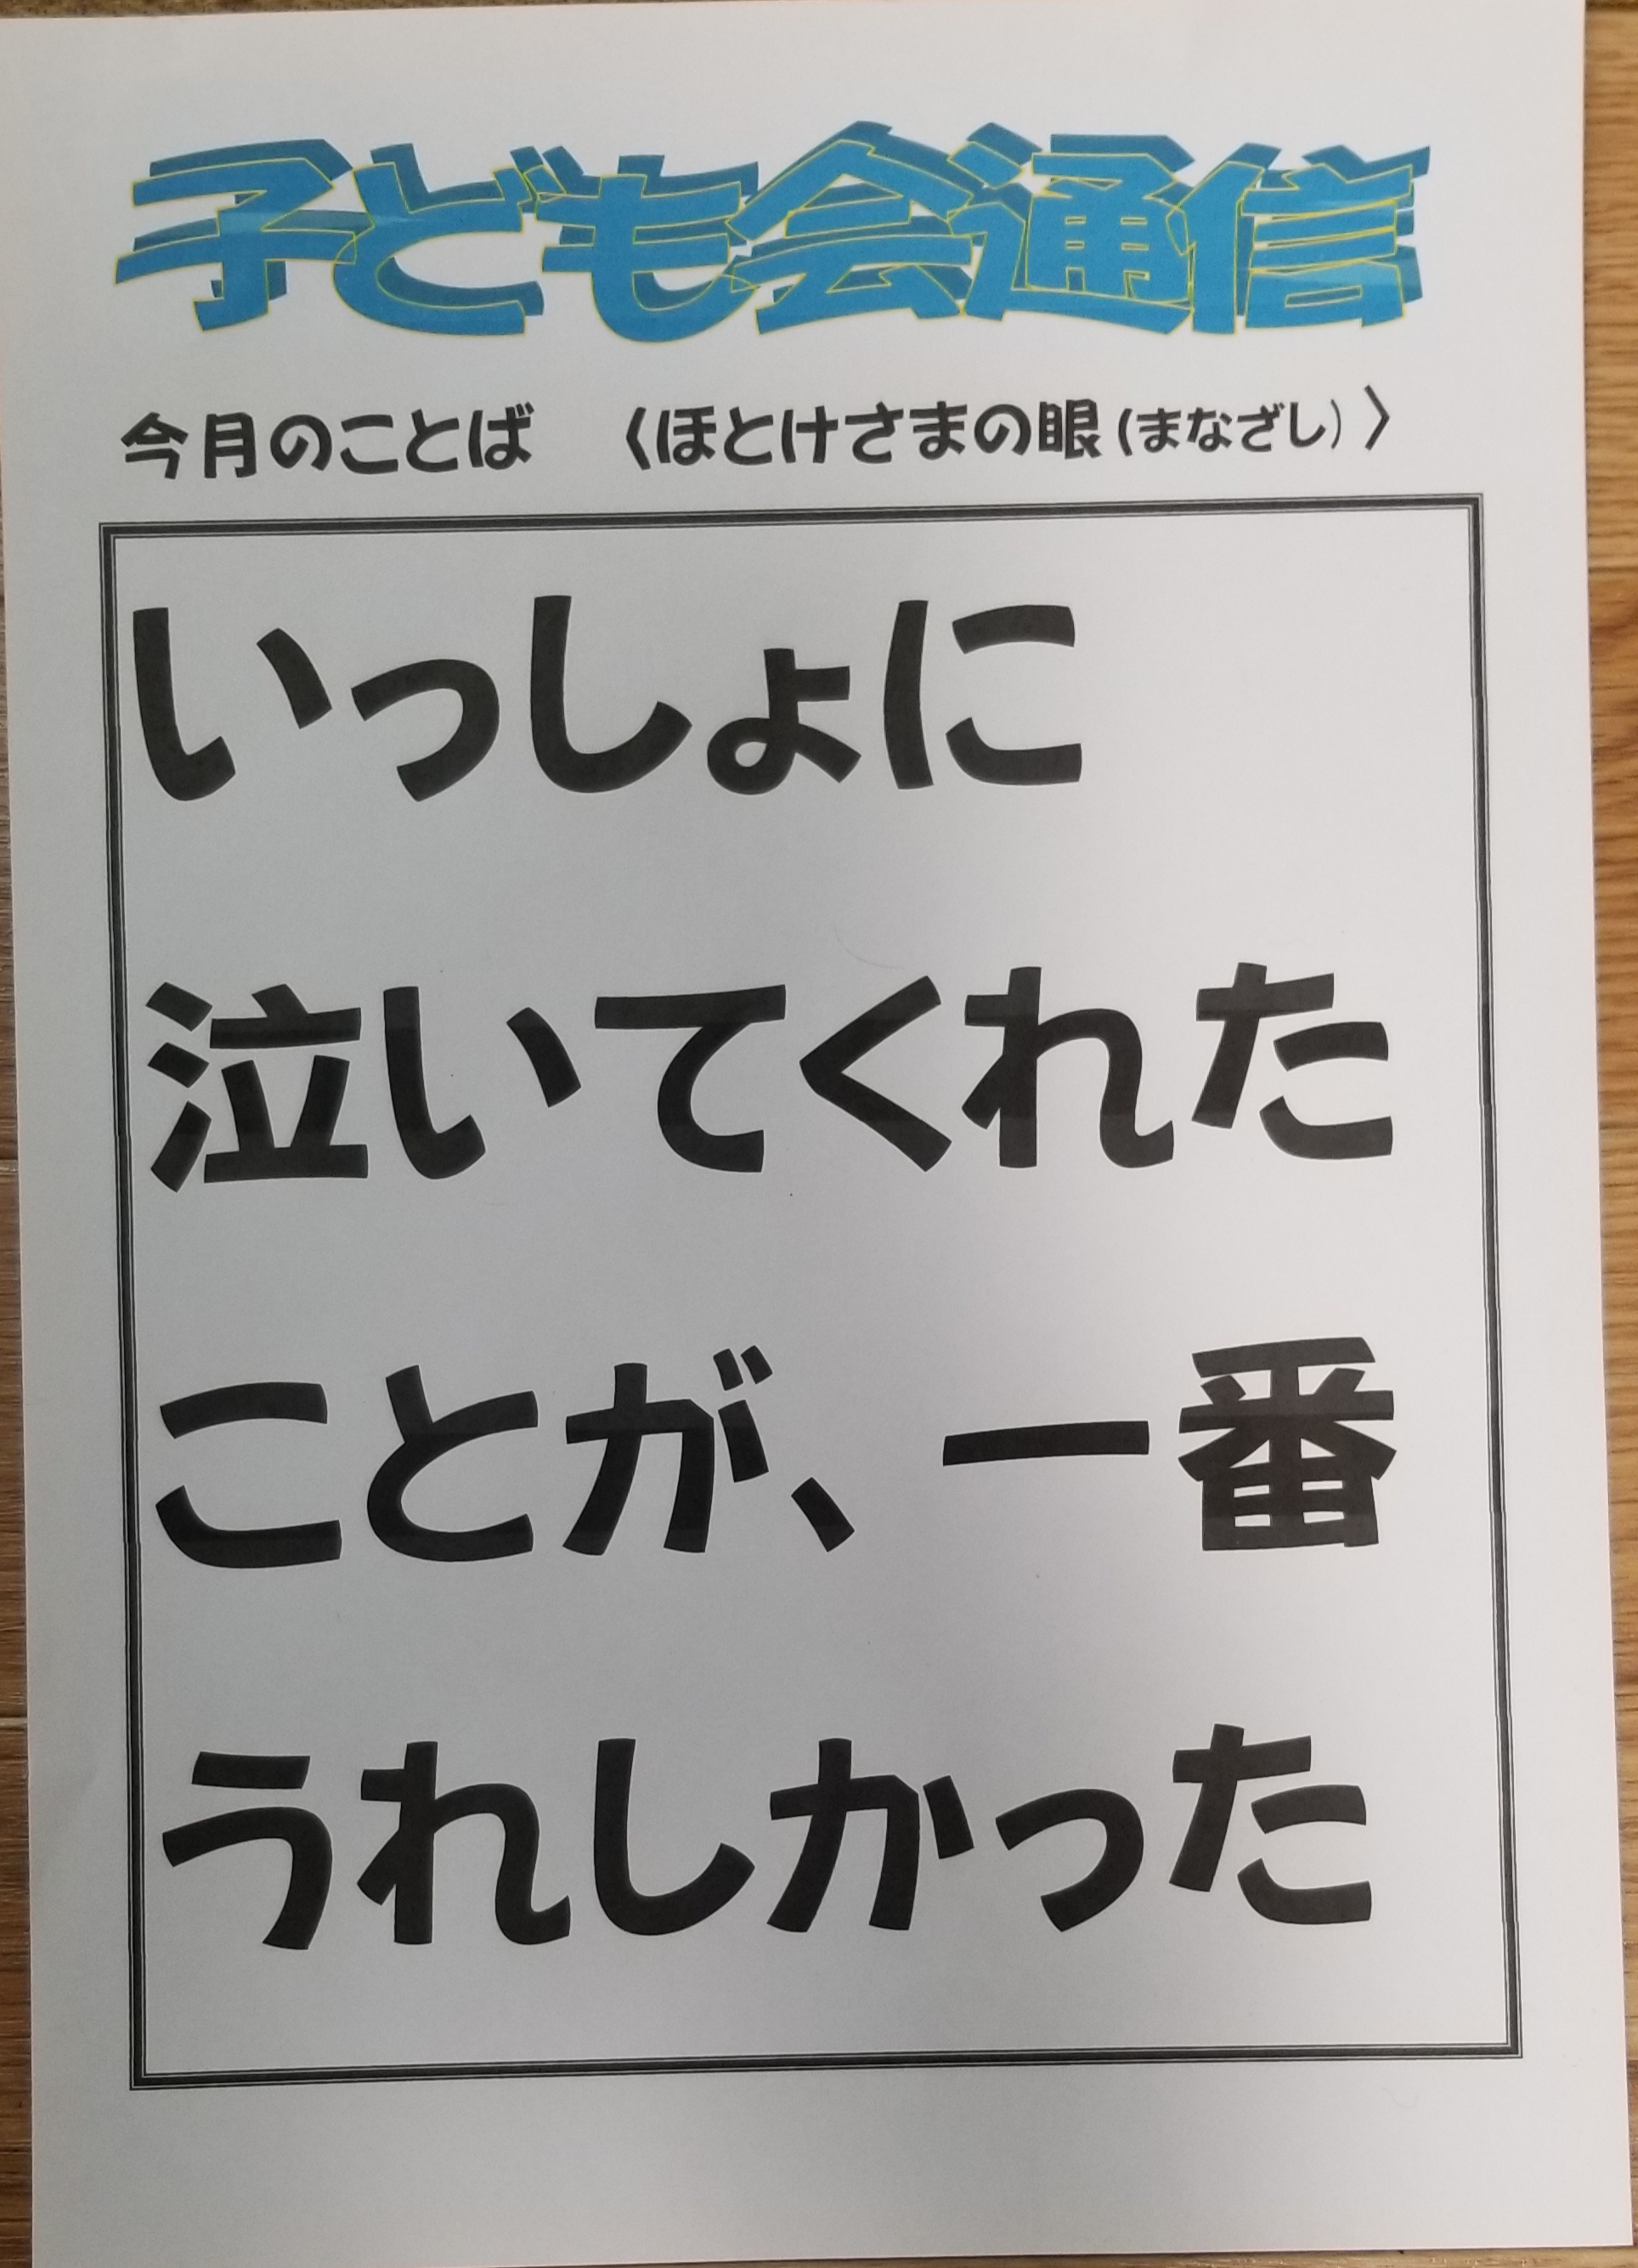 子ども会通信
今月のことば　〈ほとけさまの眼(まなざし)〉
いっしょに
泣いてくれた
ことが、一番
うれしかった